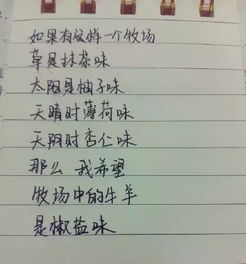 如果有这样一个牧场
草是抹茶味
太阳是柚子味
天晴时薄荷味
天阴时杏仁味
那么 我希望
牧场中的牛羊
是椒盐味